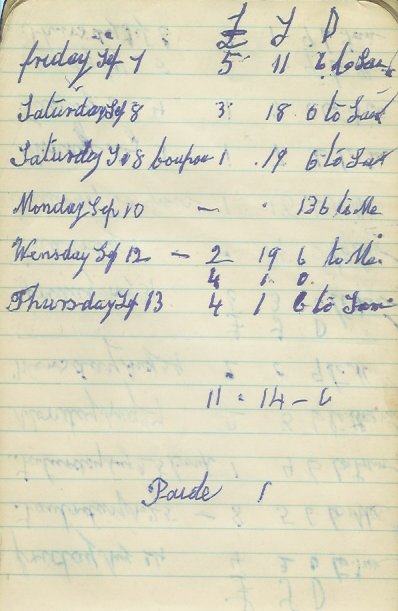 £ S D
friday Sep 7 5 11 6 to San
Saturday Sep 8 3 18 6 to San
Saturday Sep 8 coupon 1 . 19 6 to San
Monday Sep 10 — . 136 to Me
Wensday Sep 12 — 2 19 6 to Me.
4 1 0
Thursday Sep 13 4 1 6 to San
11 : 14 – 6
Paide 1